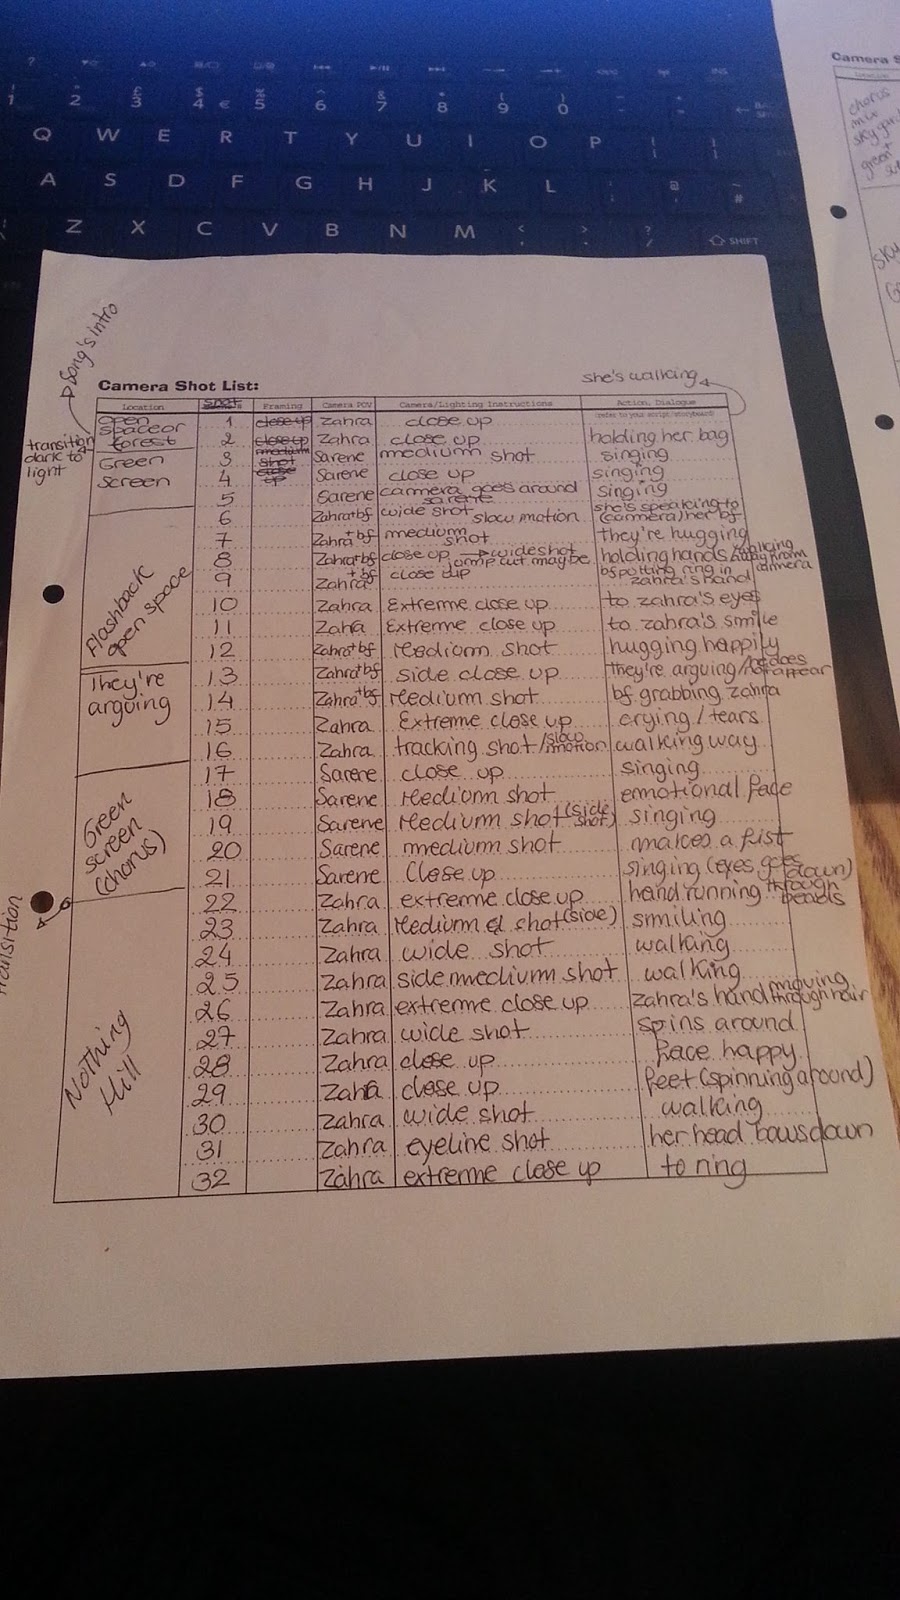 Q W E R T Y U I O P
A S D F G H J K L
Z X C V B N M
SHIFT
Camera S
chorus
sky gar
green
Song's intro
she's walking
Camera Shot List:
Location shot Framing Camera POV Camera/Lighting Instructions Action, Dialogue
(refer to your script/storyboard)
transition dark to light
open space or forest
1 close up Zahra close up
2 close up Zahra close up holding her bag
Green Screen
3 medium shot Sarene medium shot singing
4 close up Sarene close up singing
5 Sarene cammera goes around sarene singing
Flashback open space
6 Zahra+bf wide shot slow motion she's speaking to (cammera) her bf
7 Zahra+bf medium shot they're hugging
8 Zahra+bf close up → wideshot jump cut maybe holding hands/walking away from camera
9 Zahra+bf close up bf putting ring in zahra's hand
10 Zahra Extreme close up to zahra's eyes
11 Zahra Extreme close up to zahra's smile
12 Zahra+bf Medium shot hugging happily
They're arguing
13 Zahra+bf side close up they're arguing/
14 Zahra+bf Medium shot bf grabbing zahra
15 Zahra Extreme close up crying/tears
16 Zahra tracking shot/slow motion walking way
Green screen (chorus)
17 Sarene close up singing
18 Sarene Medium shot emotional face
19 Sarene Medium shot (side shot) singing
20 Sarene medium shot makes a fist
21 Sarene Close up singing (eyes goes down)
transition
Nothing Hill
22 Zahra extreme close up hand running through beads
23 Zahra Medium shot (side) smiling
24 Zahra wide shot walking
25 Zahra side medium shot walking
26 Zahra extreme close up zahra's hand moving through hair
27 Zahra wide shot spins around
28 Zahra close up face happy
29 Zahra close up feet (spinning around)
30 Zahra wide shot walking
31 Zahra eyeline shot her head bows down
32 Zahra extreme close up to ring